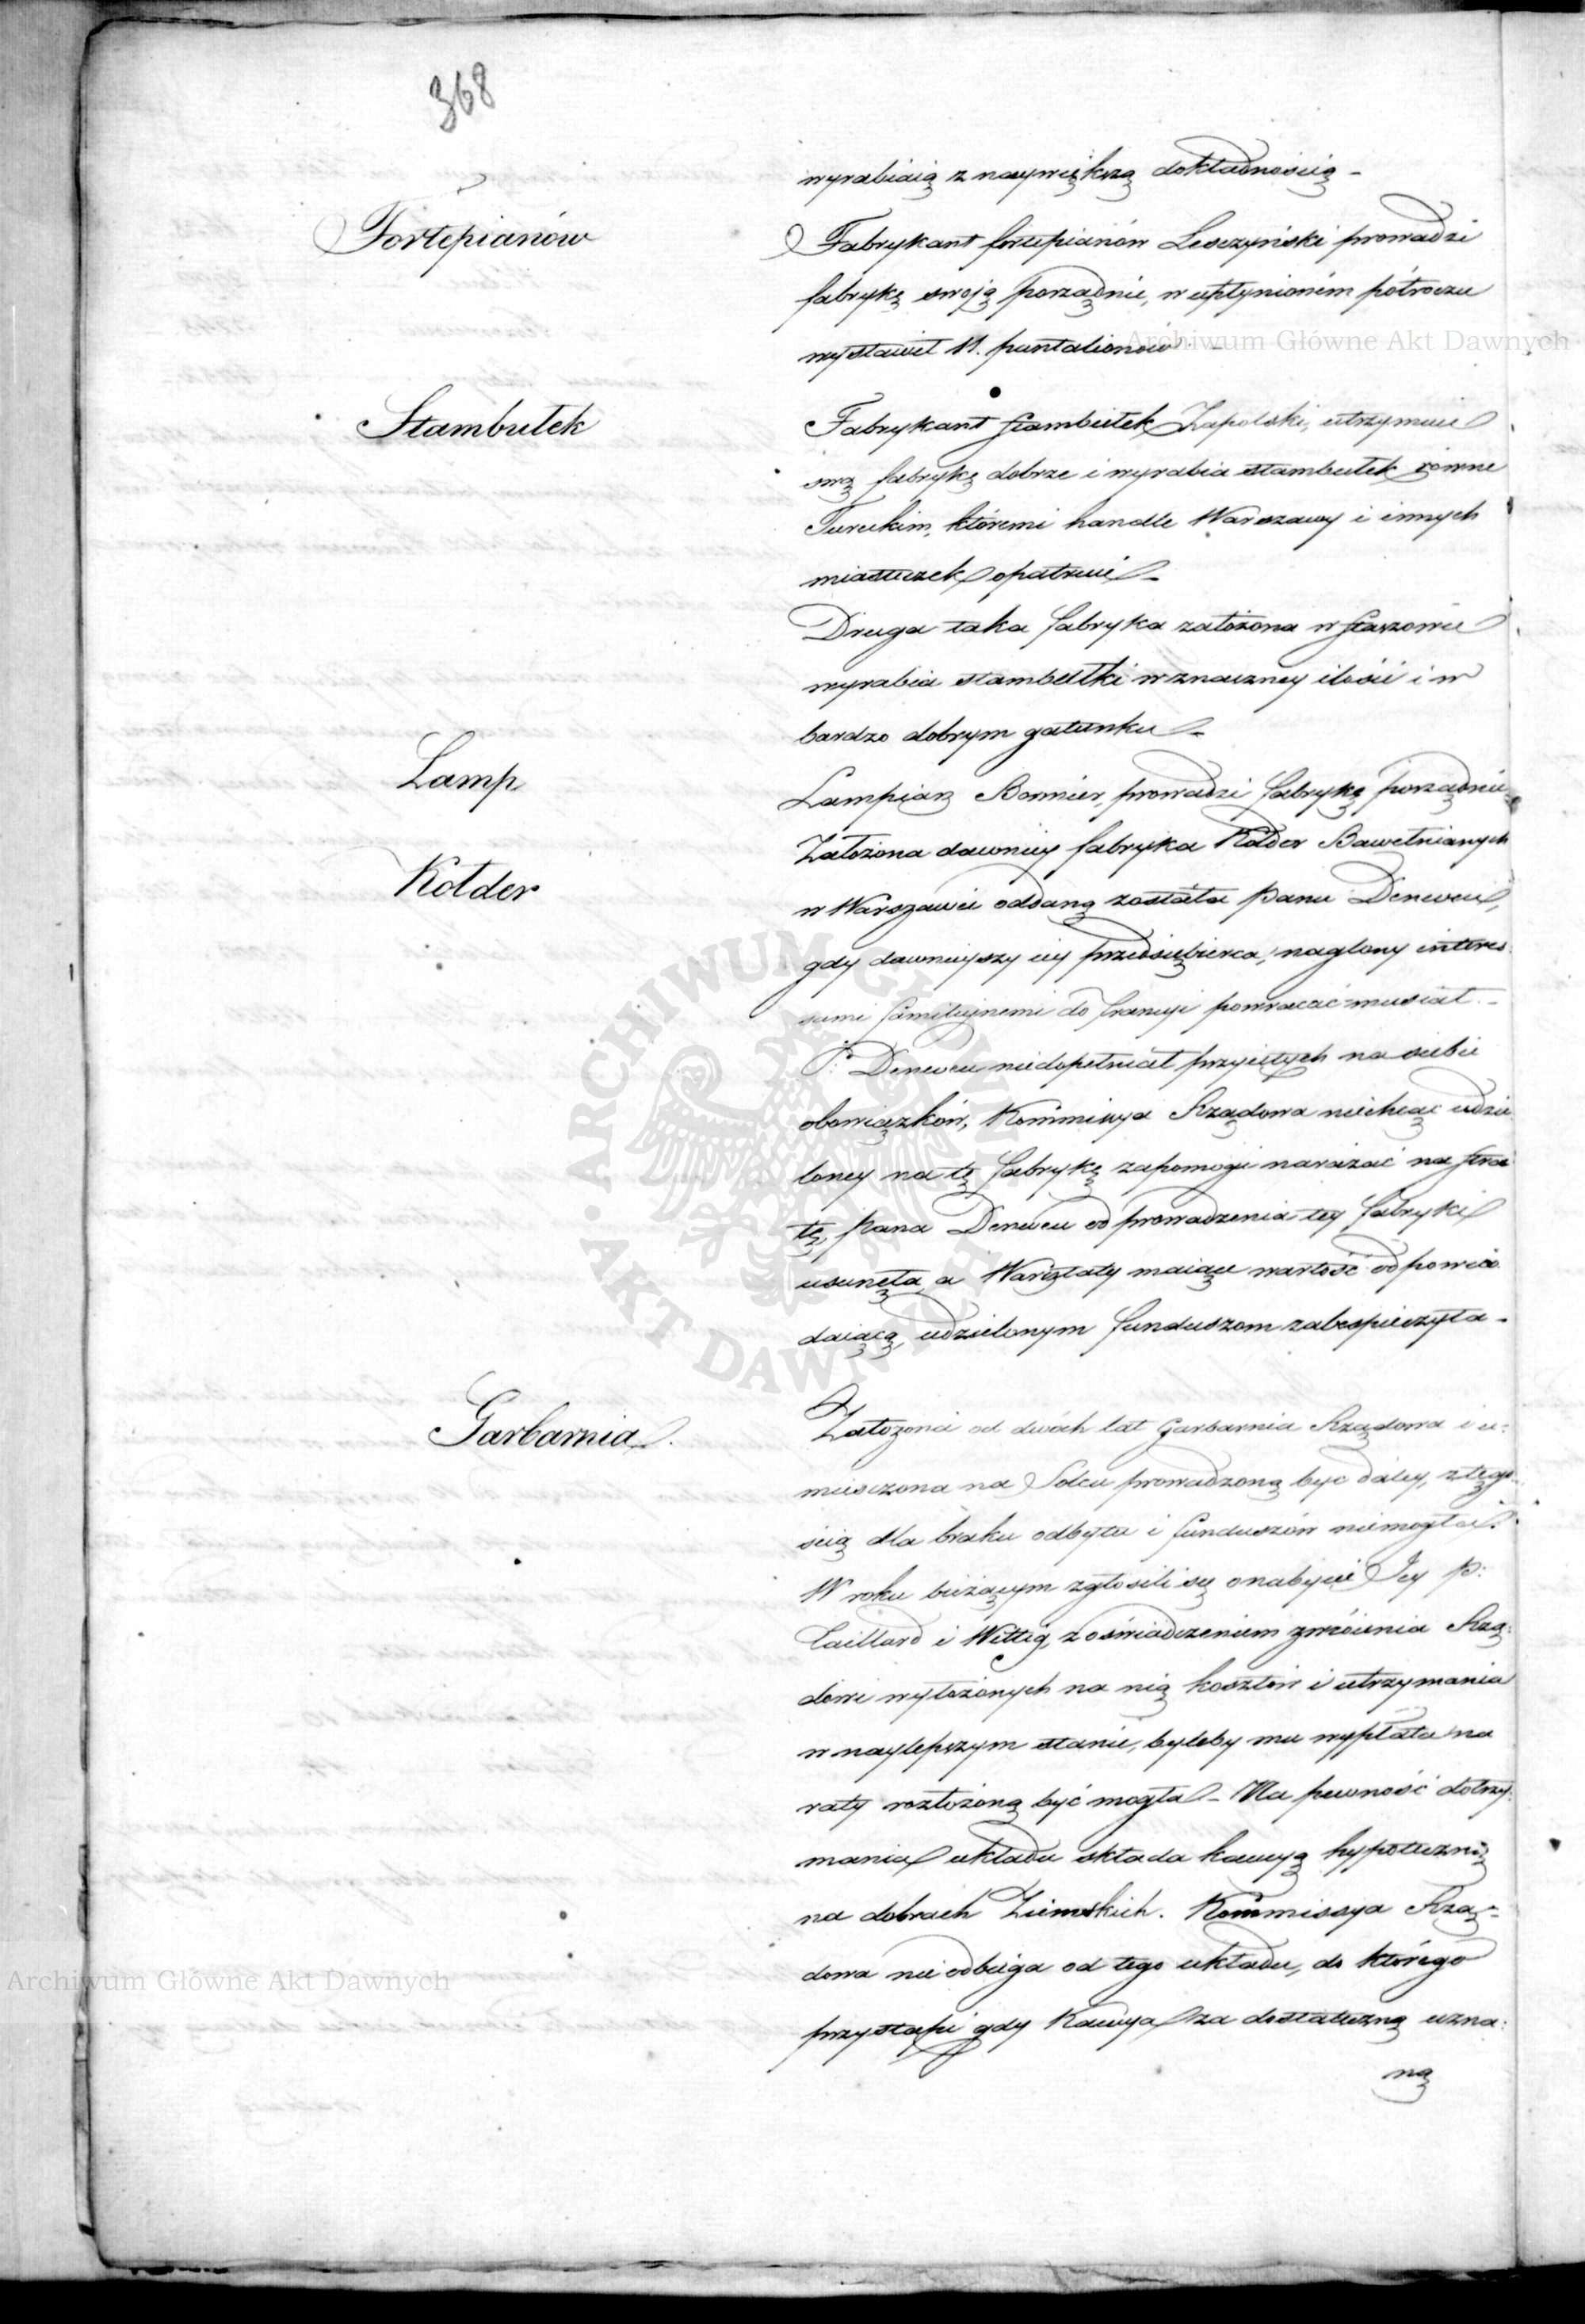 368
wyrabiaią z naywiększą dokładnością -
Fortepianów
Fabrykant fortepianów Lesczyński prowadzi
fabrykę swoją porządnie, w upłynioném półroczu
wystawił 11. pantalionów -
Stambułek
Fabrykant stambułek Zapolski, utrzymuie
swą fabrykę dobrze i wyrabia stambułek równe
Tureckim, któremi handle Warszawy i innych
miasteczek opatruie -
Druga taka fabryka założona w Staszowie
wyrabia stambułki w znaczney ilości i w
bardzo dobrym gatunku -
Lamp
Lampiarz Bormier, prowadzi fabrykę porządnie
Kołder
Założona dawniey fabryka Kołder Bawełnianych
w Warszawie oddaną została Panu Deneveu,
gdy dawnieyszy iey przedsiębierca, naglony interes-
sami familiynemi do Francyi powracać musiał. -
P. Deneveu niedopełniał przyiętych na siebie
obowiązków, Kommissya Rządowa niechcąc udzie
loney na tę fabrykę zapomogi narażać na stra
tę, Pana Deneveu od prowadzenia tey fabryki
usunęła, a Warsztaty maiące wartość odpowia
daiącą, udzielonym funduszom zabespieczyła -
Garbarnia.
Założona od dwóch lat Garbarnia Rządowa i u:
miesczona na Solcu prowadzoną być daley, z tęgo-
ścią dla braku odbytu i funduszów niemogła.
W roku bieżącym zgłosili się o nabycie Jey P:
Caillard i Wittig, z oświadczeniem zwrócenia Rzą:
dowi wyłożonych na nią kosztów i utrzymania
w naylepszym stanie, byleby mu wypłata na
raty rozłożoną być mogła - Na pewność dotrzy:
mania układu składa kaucyą hypoteczną
na dobrach Ziemskich. Kommissya Rzą-
dowa nie odbiega od tego układu, do którego
przystąpi gdy Kaucya za dostateczną uzna:
ną
Archiwum Główne Akt Dawnych
ARCHIWUM GŁÓWNE AKT DAWNYCH
Archiwum Główne Akt Dawnych